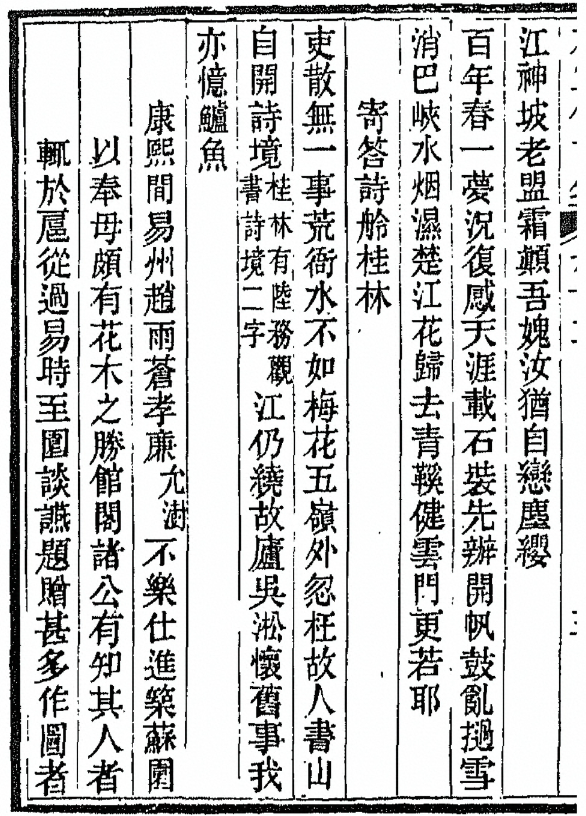 江神坡老盟霜顛吾媿汝猶自戀塵纓
百年春一夢況復感天涯載石裝先辦開帆鼓亂撾雪
消巴峽水烟濕楚江花歸去青鞵健雲門更若耶
寄答詩舲桂林
吏散無一事荒衙水不如梅花五嶺外忽枉故人書山
自開詩境桂林有陸務觀書詩境二字江仍繞故廬吳淞懷舊事我
亦憶鱸魚
康熙間易州趙雨蒼孝廉允澍不樂仕進築蘇園
以奉母頗有花木之勝館閣諸公有知其人者
輒於扈從過易時至園談讌題贈甚多作圖者